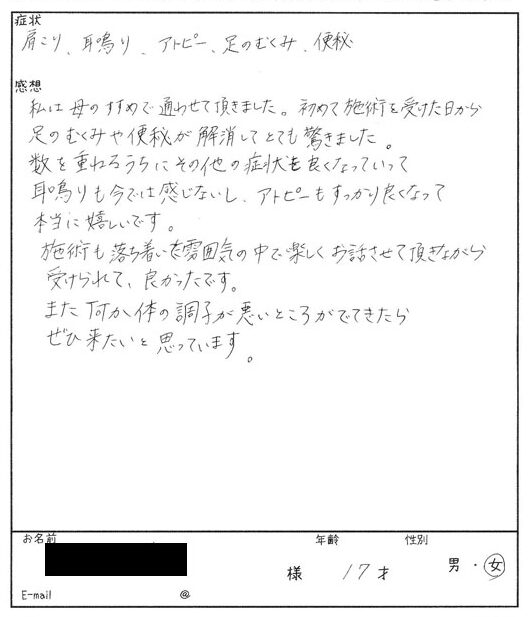 症状
肩こり、耳鳴り、アトピー、足のむくみ、便秘
感想
私は母のすすめで通わせて頂きました。初めて施術を受けた日から
足のむくみや便秘が解消してとても驚きました。
数を重ねるうちにその他の症状も良くなっていって
耳鳴りも今では感じないし、アトピーもすっかり良くなって
本当に嬉しいです。
施術も落ち着いた雰囲気の中で楽しくお話させて頂きながら
受けられて、良かったです。
また何か体の調子が悪いところがでてきたら
ぜひ来たいと思っています。
お名前 年齢 性別
様 17才 男・女
E-mail @